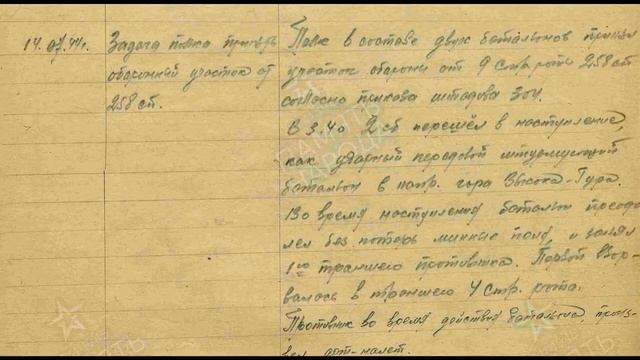 14.07.44г.
Задача полка принять
оборонный участок от
258 сп.
Полк в составе двух батальонов принял
участок обороны от 9 стр роты 258 сп
согласно приказа штадива 304.
В 3.40 2 сб перешёл в наступление,
как ударный передовой штурмующий
батальон в напр. гора Высока-Гура.
Во время наступления батальон преодо
лел без потерь минные поля и занял
1ую траншею противника. Первой вор-
валась в траншею 4 стр. рота.
Противник во время действия батальона, произ-
вел арт-налет.
ПАМЯТЬ
НАРОДА